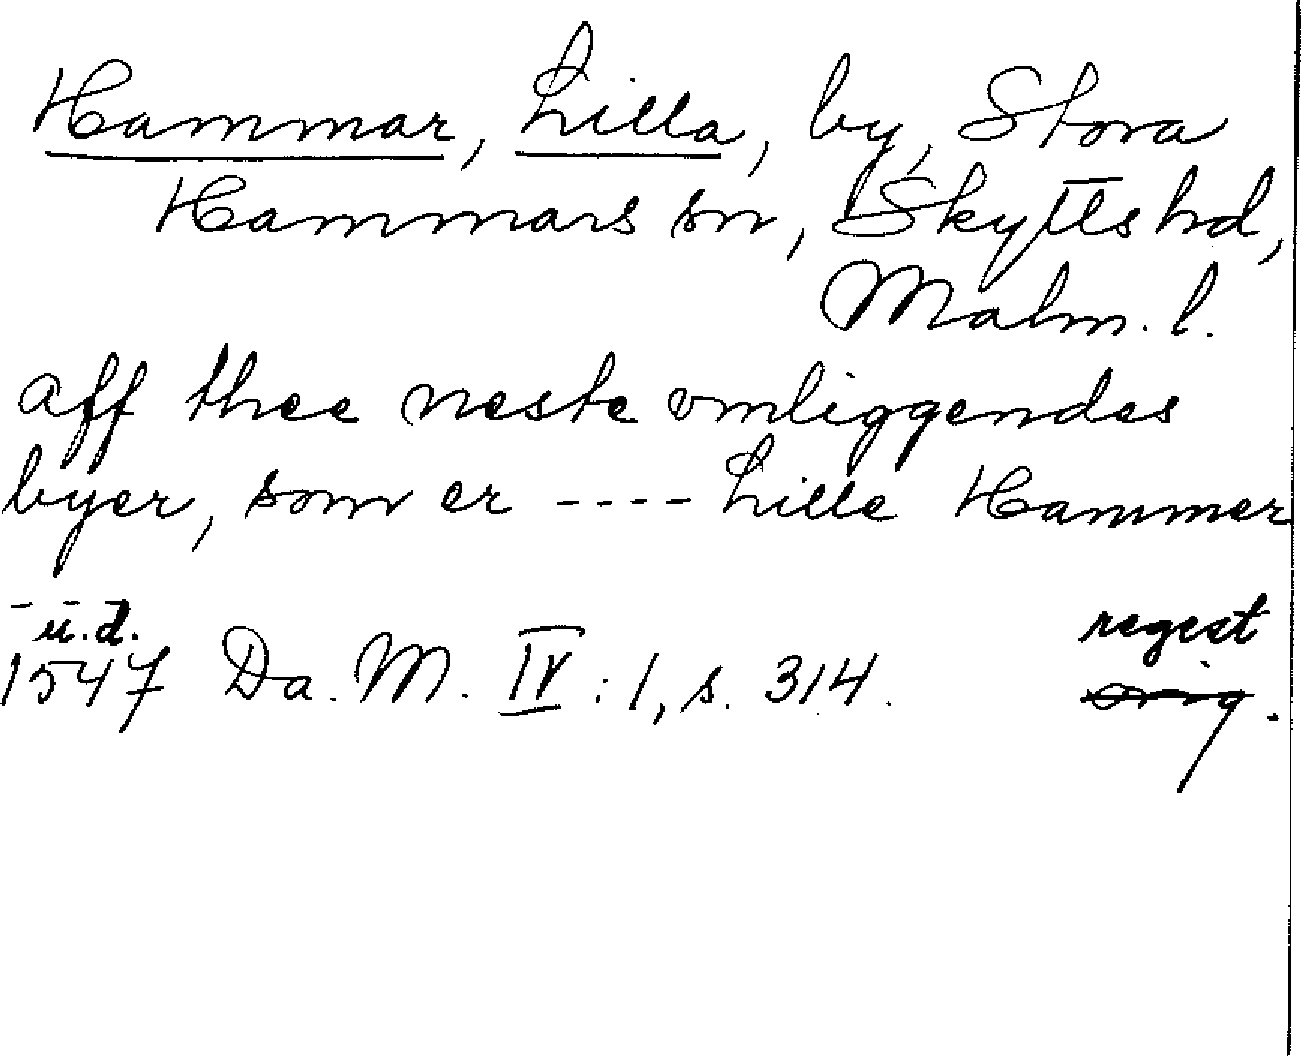 Hammar, Lilla, by, Stora
Hammars sn, Skytts hd,
Malm. l.
aff thee neste omliggendes
byer, som er ---- Lille Hammer
u.d.
1547 Da. M. IV : 1, s. 314.
regest
orig.